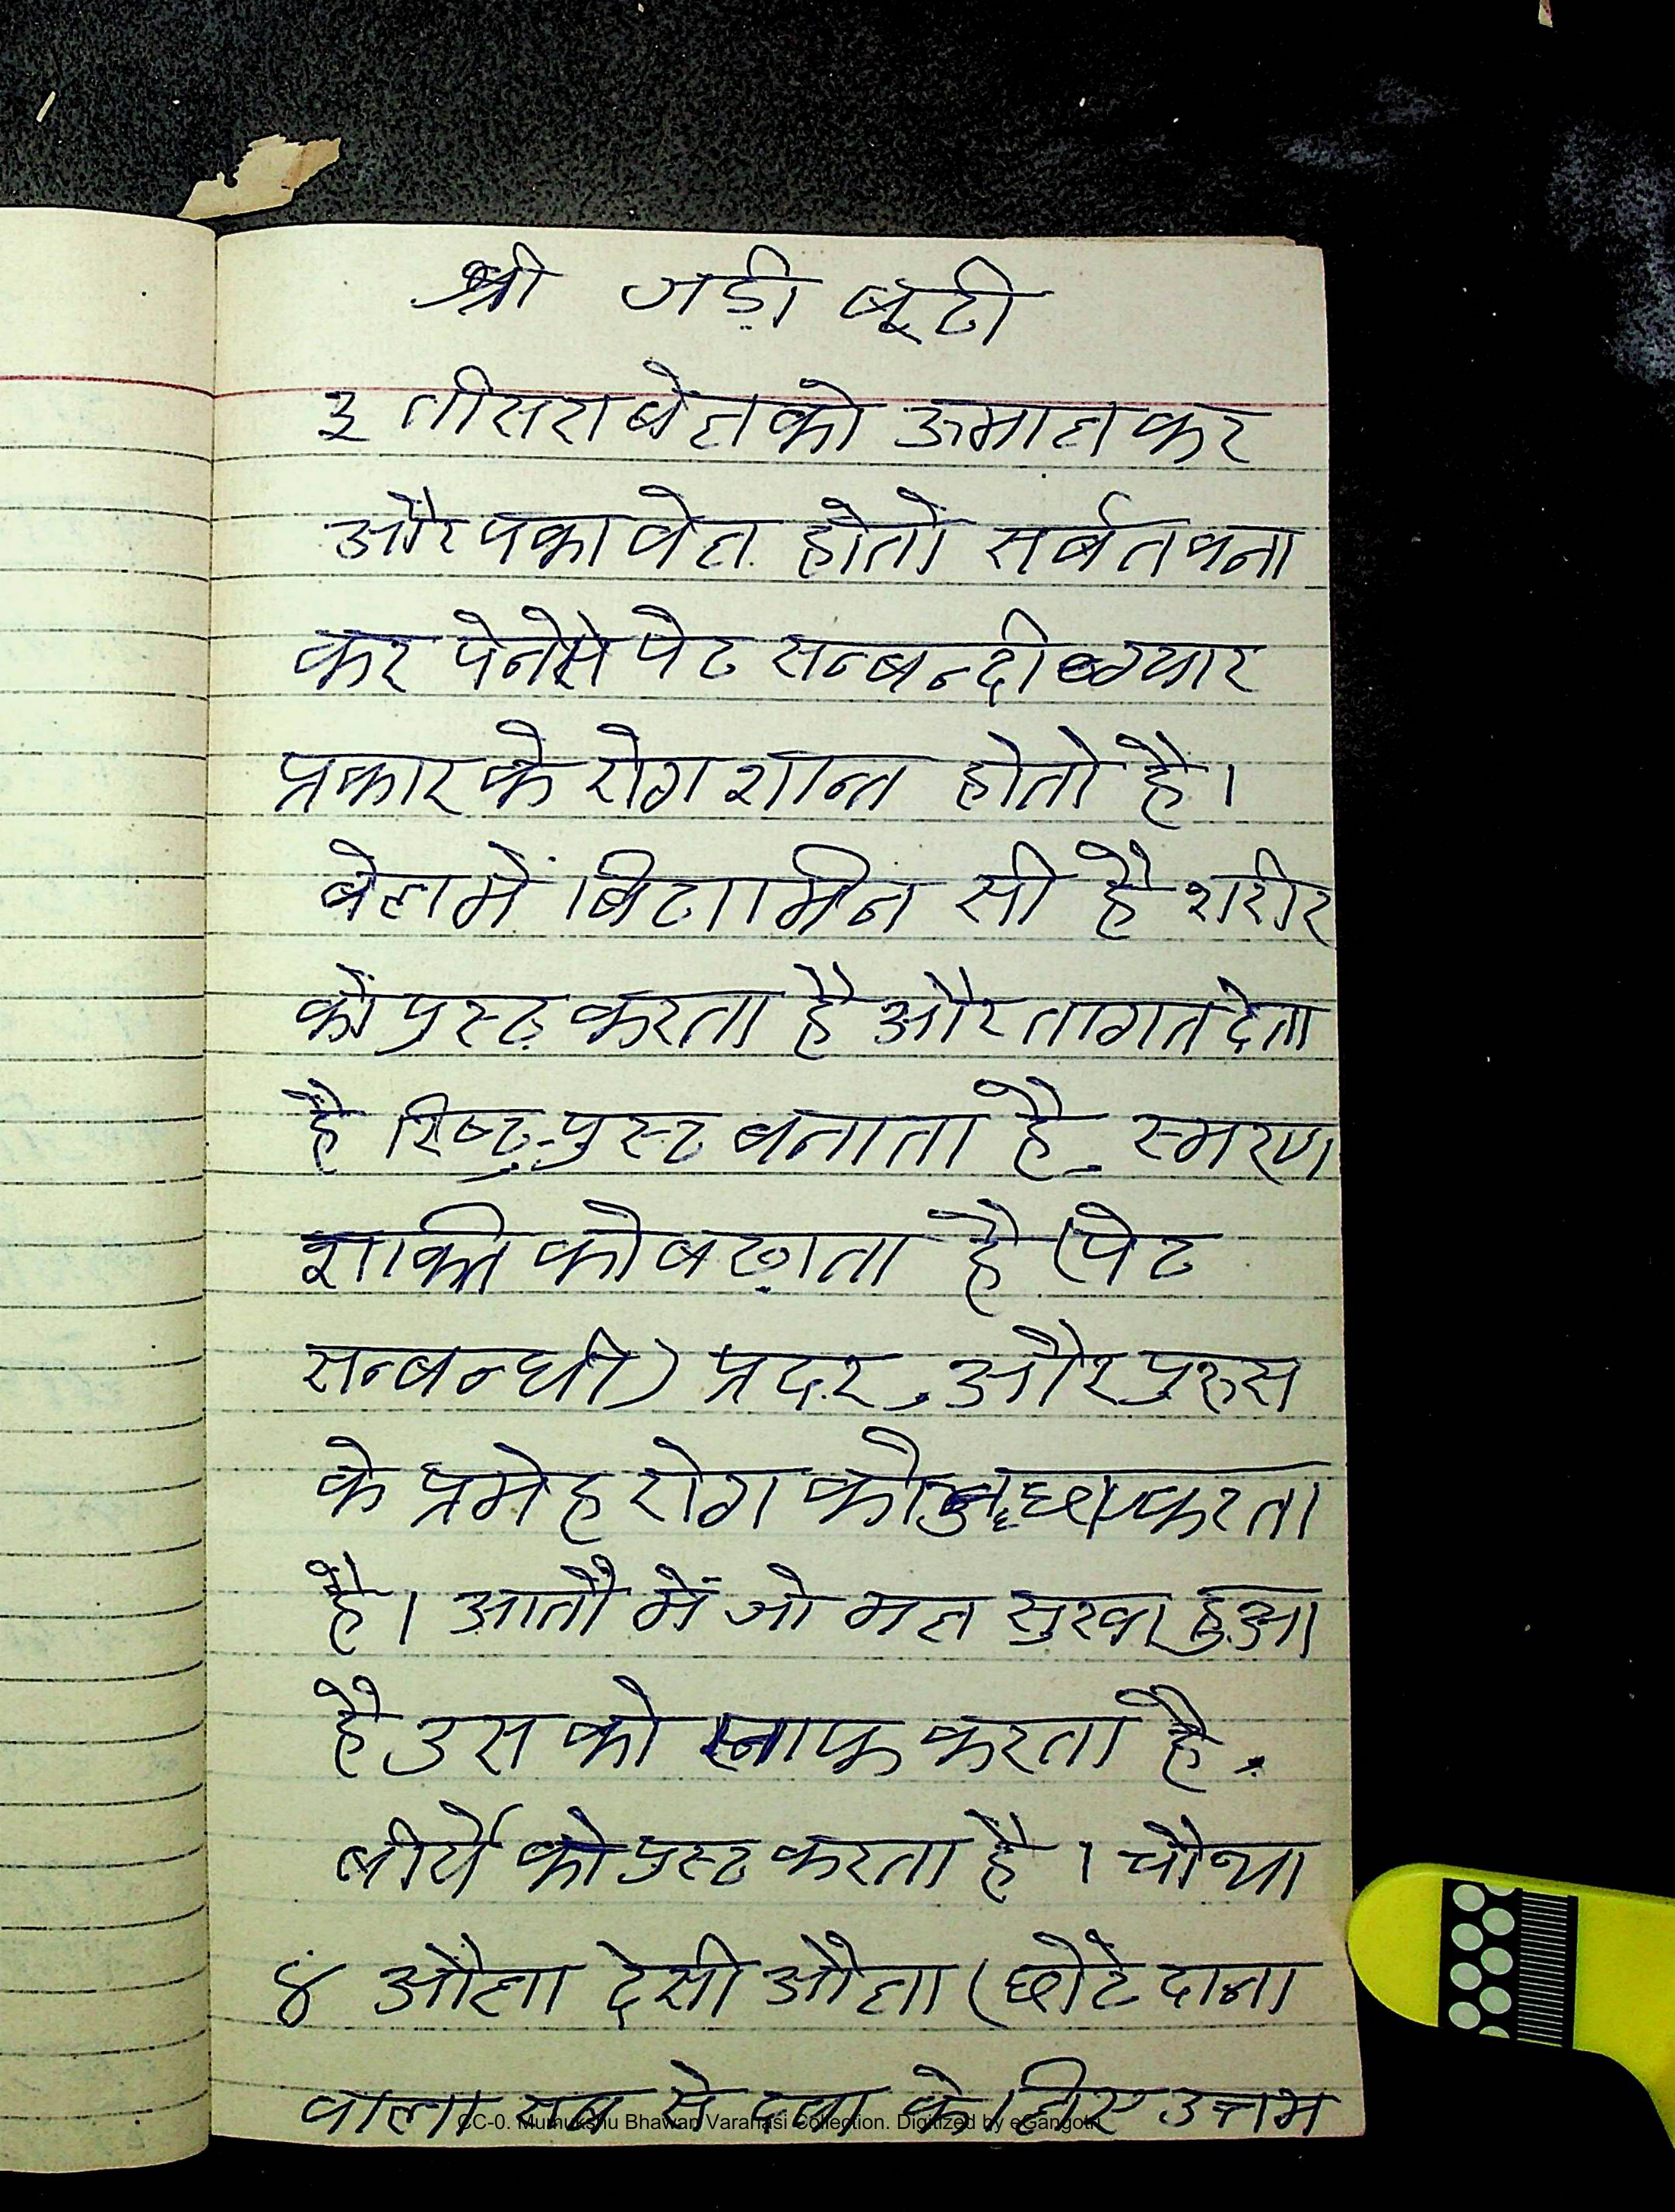 श्री जड़ी बूटी
३ तीसरा बेल को ऊमाल कर
और पका बेल होतो सर्बत बना
कर पेनेसे पेट सन्बन्दी
प्रकार के रोग शान्त होतो है।
बेल में बिटामिन सी है शरीर
कों पुस्ट करता है और तागत देता
है रिष्ट-पुस्ट बनाता है. स्मरण
शक्ति को बढ़ाता है (पेट
सन्बन्धी) प्रदर, और पुरुस
के प्रमेह रोग को करता
है। आतौ में जो मल सुखा हुआ
है उस को साफ करता है.
बीर्ये को पुस्ट करता है। चौथा
४ औला देसी औला (छोटे दाना
वाला सब से दवा के लिए उत्तम
CC-0. Mumukshu Bhawan Varanasi Collection. Digitized by eGangotri